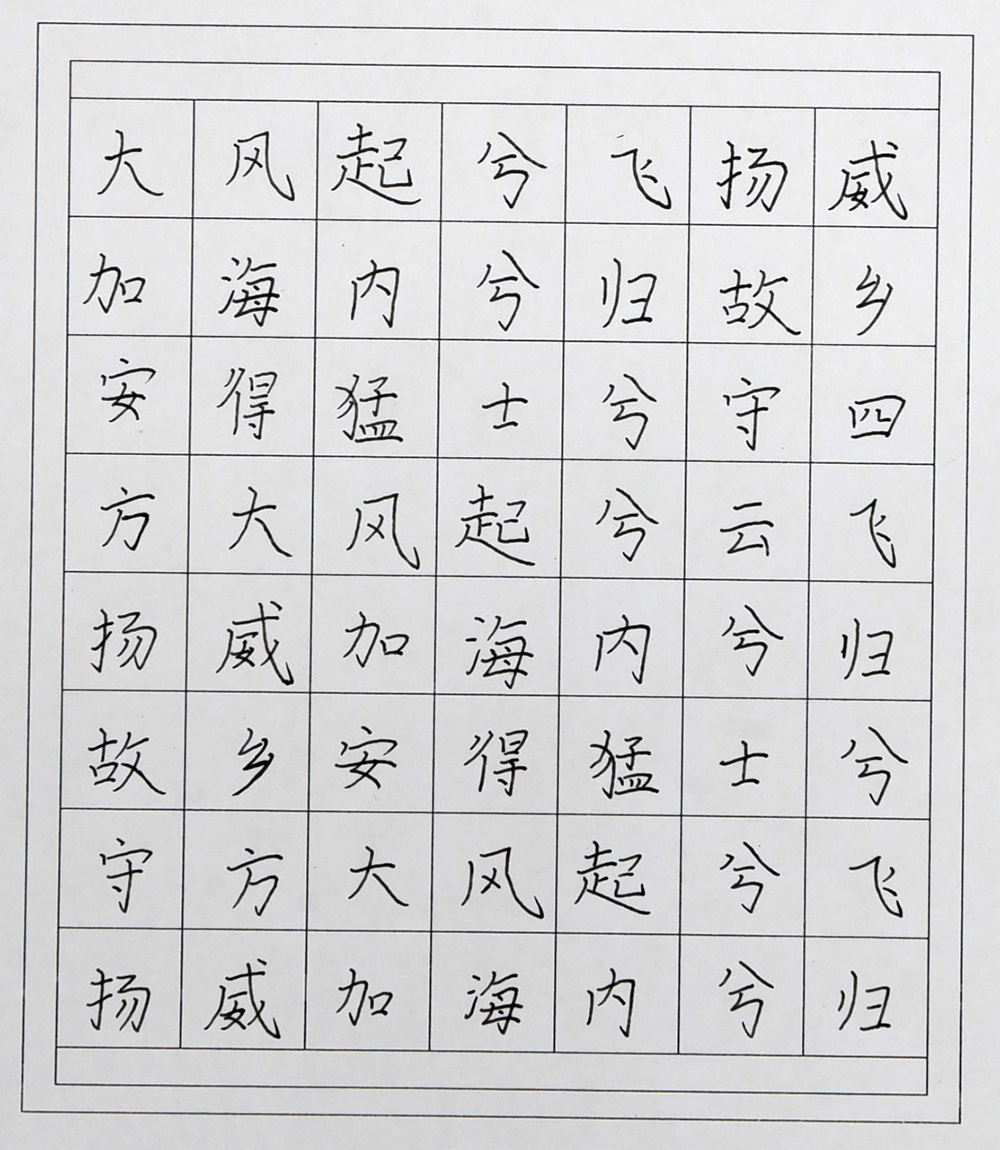 大风起兮飞扬威
加海内兮归故乡
安得猛士兮守四
方大风起兮云飞
扬威加海内兮归
故乡安得猛士兮
守方大风起兮飞
扬威加海内兮归